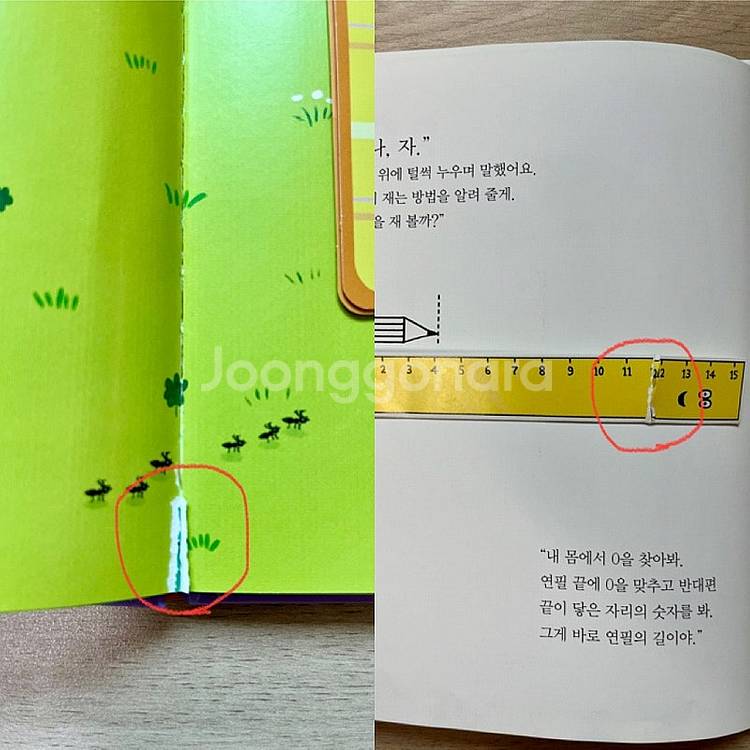 나, 자.”
위에 털썩 누우며 말했어요.
재는 방법을 알려 줄게.
을 재 볼까?”
Joonggonara
2 3 4 5 6 7 8 9 10 11 12 13 14 15
“내 몸에서 0을 찾아봐.
연필 끝에 0을 맞추고 반대편
끝이 닿은 자리의 숫자를 봐.
그게 바로 연필의 길이야.”